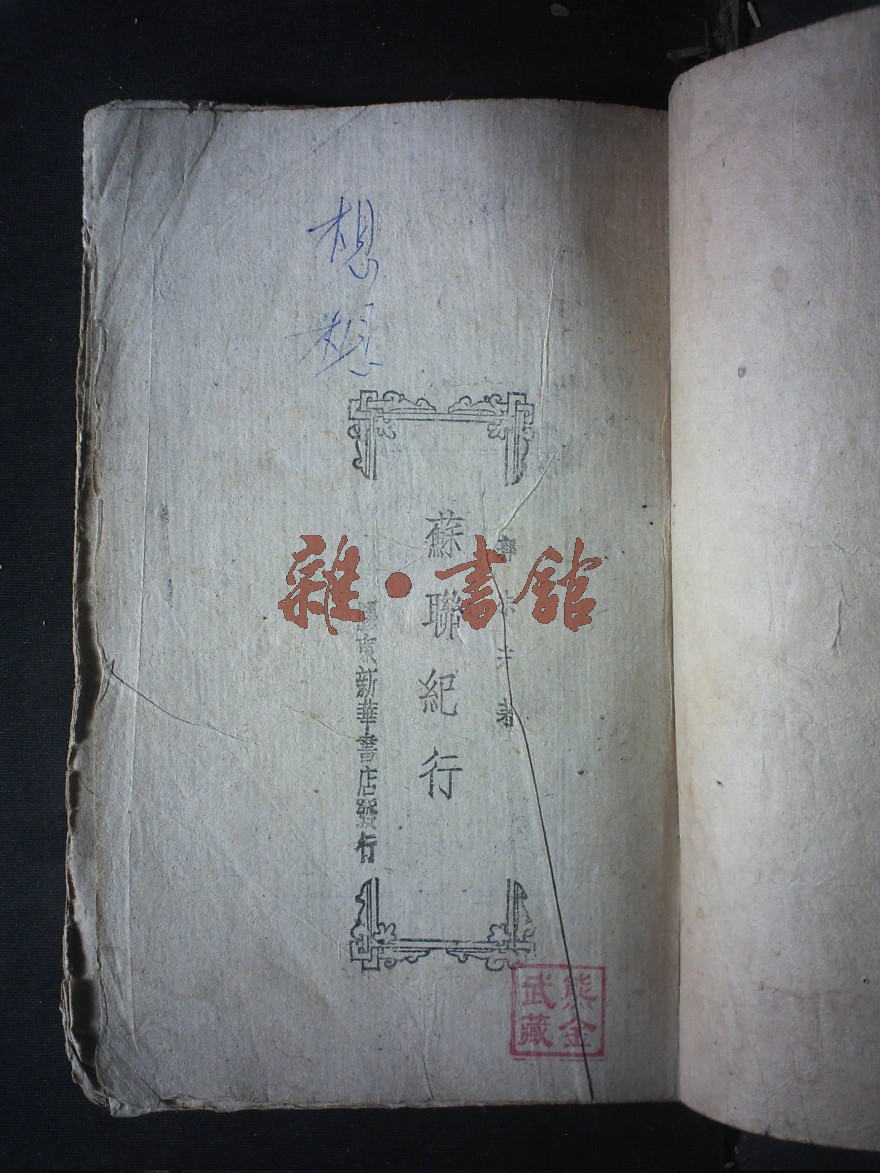 想
想
著
蘇聯紀行
東新華書店發行
雜·書館
熊金
武藏